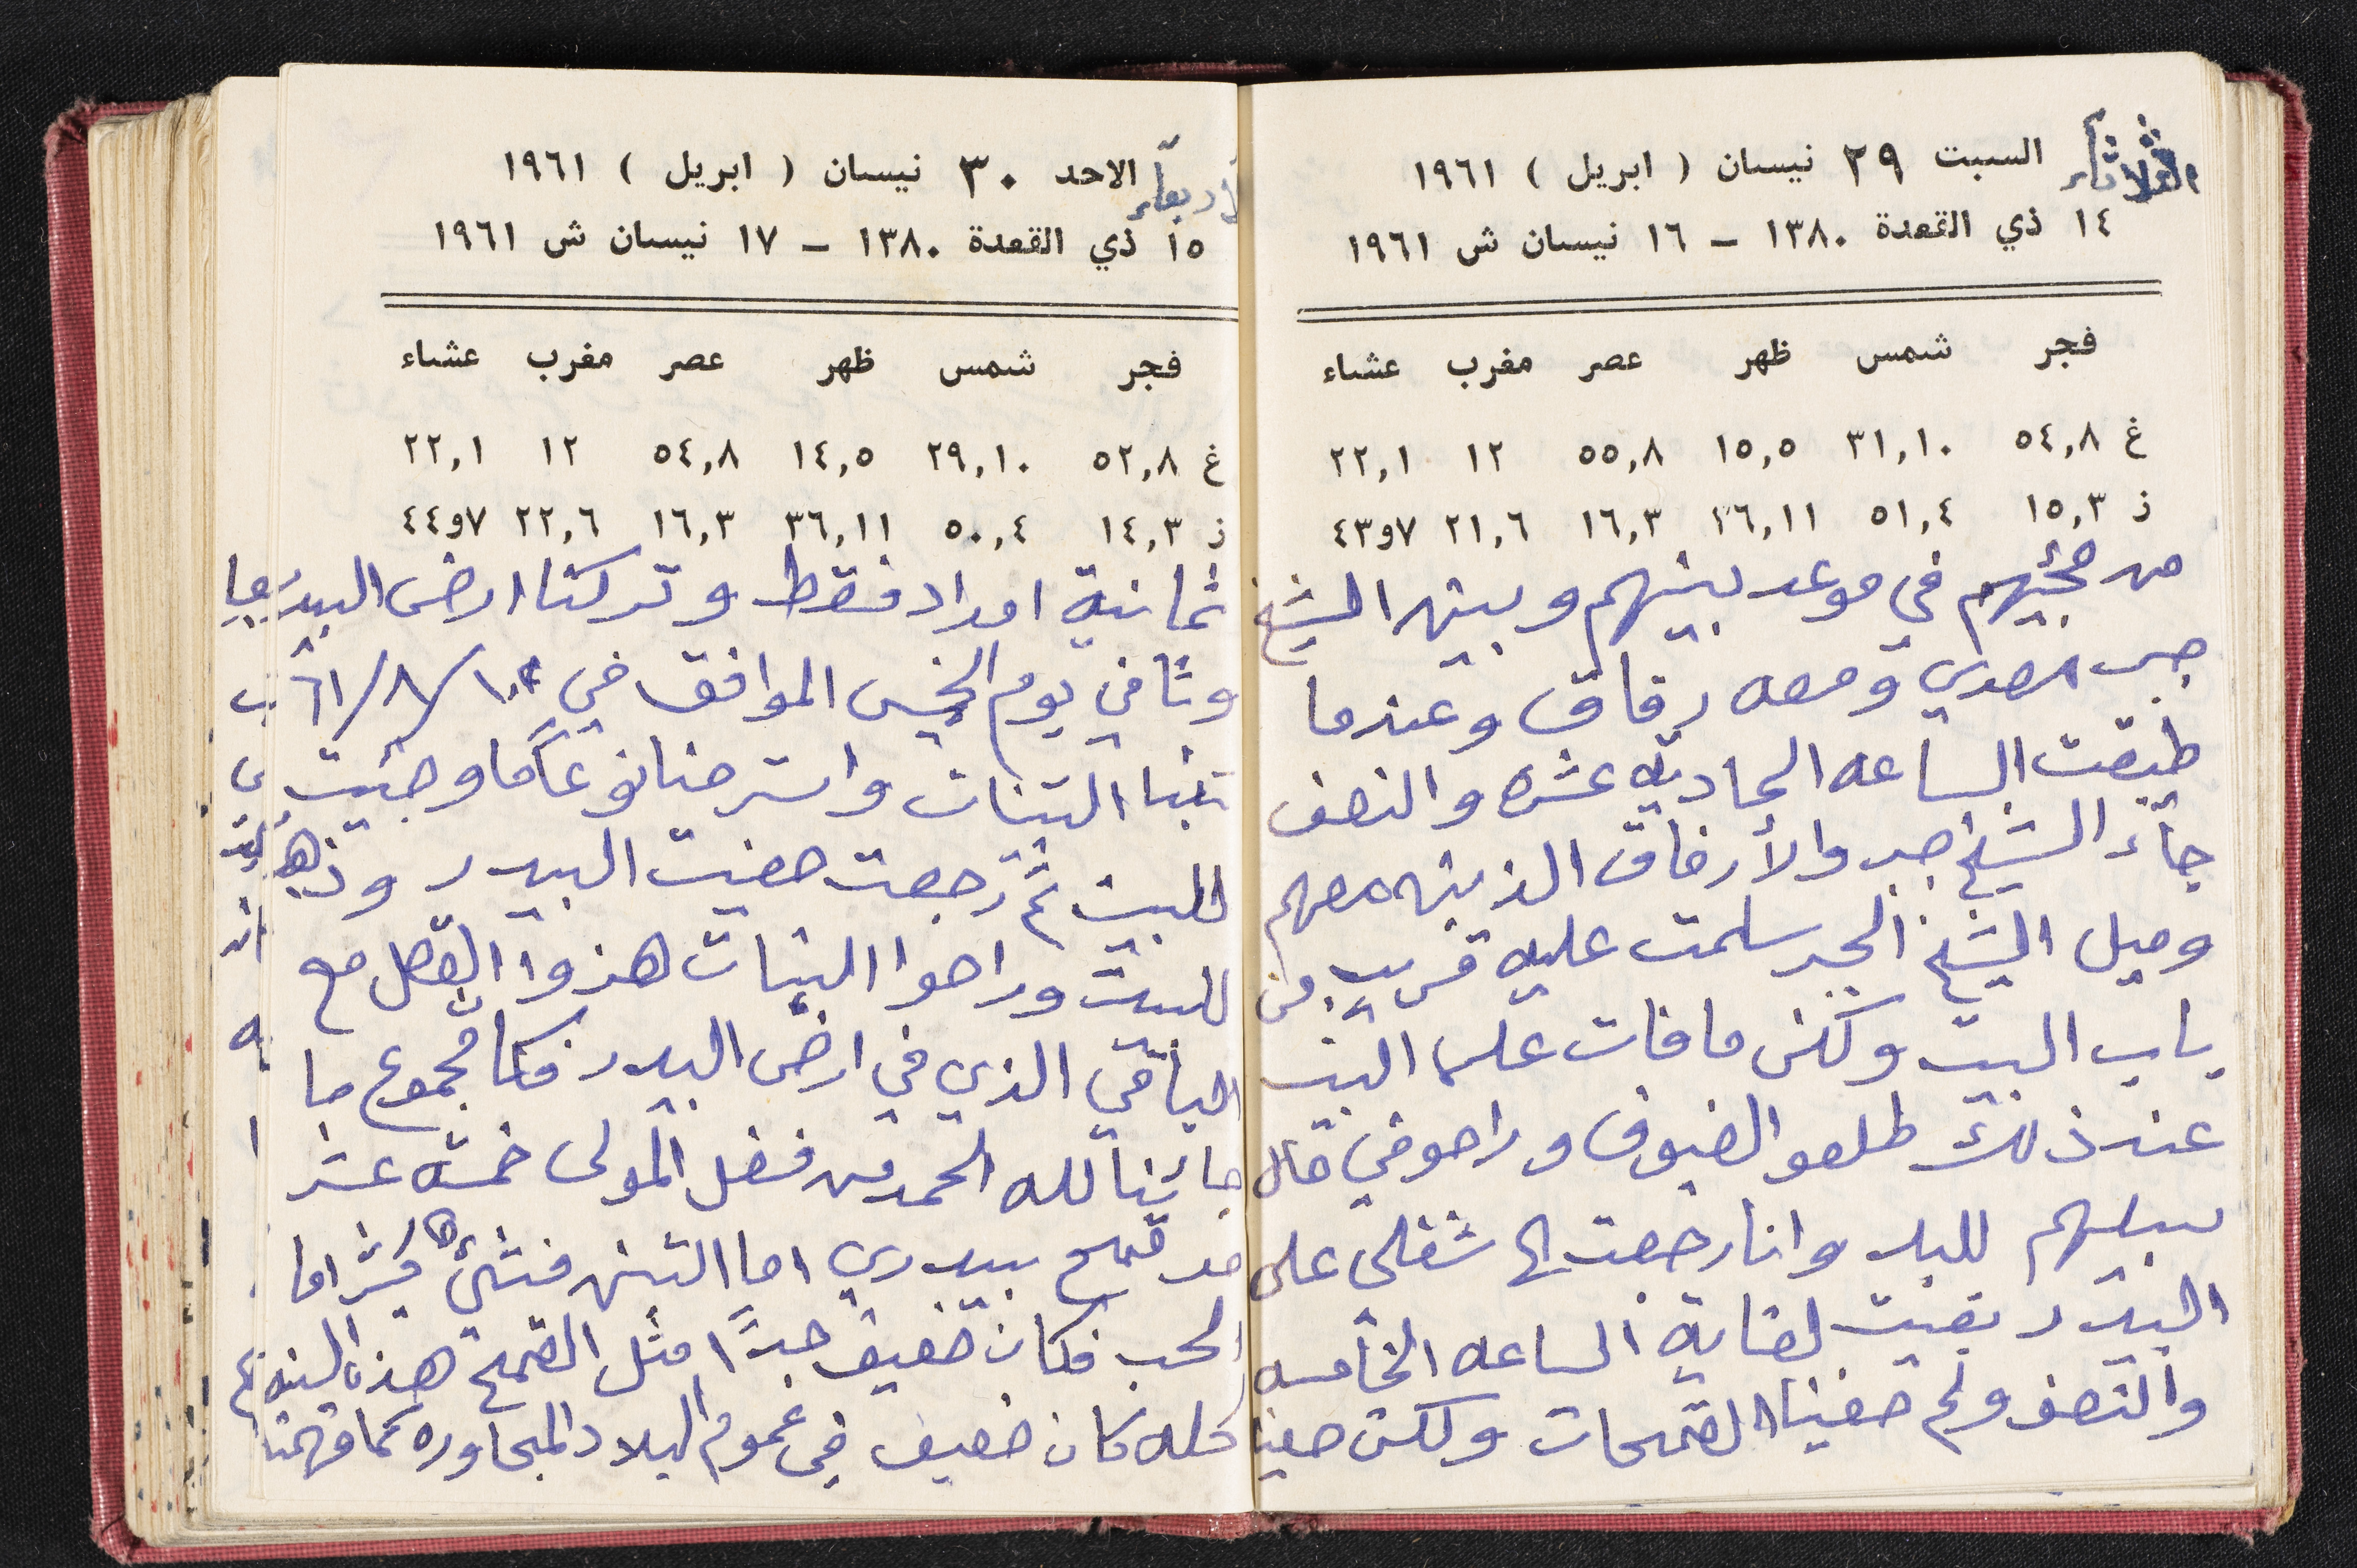 الثلاثاء السبت ٢٩ نيسان ( ابريل ) ١٩٦١
١٤ ذي القعدة ١٣٨٠ – ١٦ نيسان ش ١٩٦١
فجر شمس ظهر عصر مغرب عشاء
غ ٥٤,٨ ٣١,١٠ ١٥,٥ ٥٥,٨ ١٢ ٢٢,١
ز ١٥,٣ ٥١,٤ ٣٦,١١ ١٦,٣ ٢١,٦ ٧و٤٣
من مجيئهم في موعد بينهم وبين الشيخ
جبر ومعه رفاق وعندما
طبقت الساعه الحاديه عشره والنصف
جاء الشيخ جبر والأرفاق الذين معهم
وميل الشيخ الجبر سلمت عليه قريب من
باب البيت ولكن ما فات على البيت
عند ذلك طلعو الضيوف وراحو في حال
سبيلهم للبلد وانا رجعت الى شغلي على
البيدر بقيت لغاية الساعه الخامسه
والنصف ولم صفينا القمحات ولكن صفينا
الاربعاء الاحد ٣٠ نيسان ( ابريل ) ١٩٦١
١٥ ذي القعدة ١٣٨٠ – ١٧ نيسان ش ١٩٦١
فجر شمس ظهر عصر مغرب عشاء
غ ٥٢,٨ ٢٩,١٠ ١٤,٥ ٥٤,٨ ١٢ ٢٢,١
ز ١٤,٣ ٥٠,٤ ٣٦,١١ ١٦,٣ ٢٢,٦ ٧و٤٤
ثمانية امداد فقط وتركنا ارض البيدر
وثاني يوم الخميس الموافق في ١٠/٨/٦١
التبنات واسترحنا نوعاً ما وجيت
للبيت ثم رجعت صفيت البيدر
للبيت وراحوا البنات هزوا القصل مع
الباقي الذي في ارض البيدر فكان مجموع ما
جائنا لله الحمد من فضل المولى خمسة عشر
مد قمح بيدري اما التبن فشيئ كثر اما
الحب فكان ضعيف جداً مثل القمح هذه السنه
كله كان ضعيف في عموم البلاد المجاوره كما فهمنا